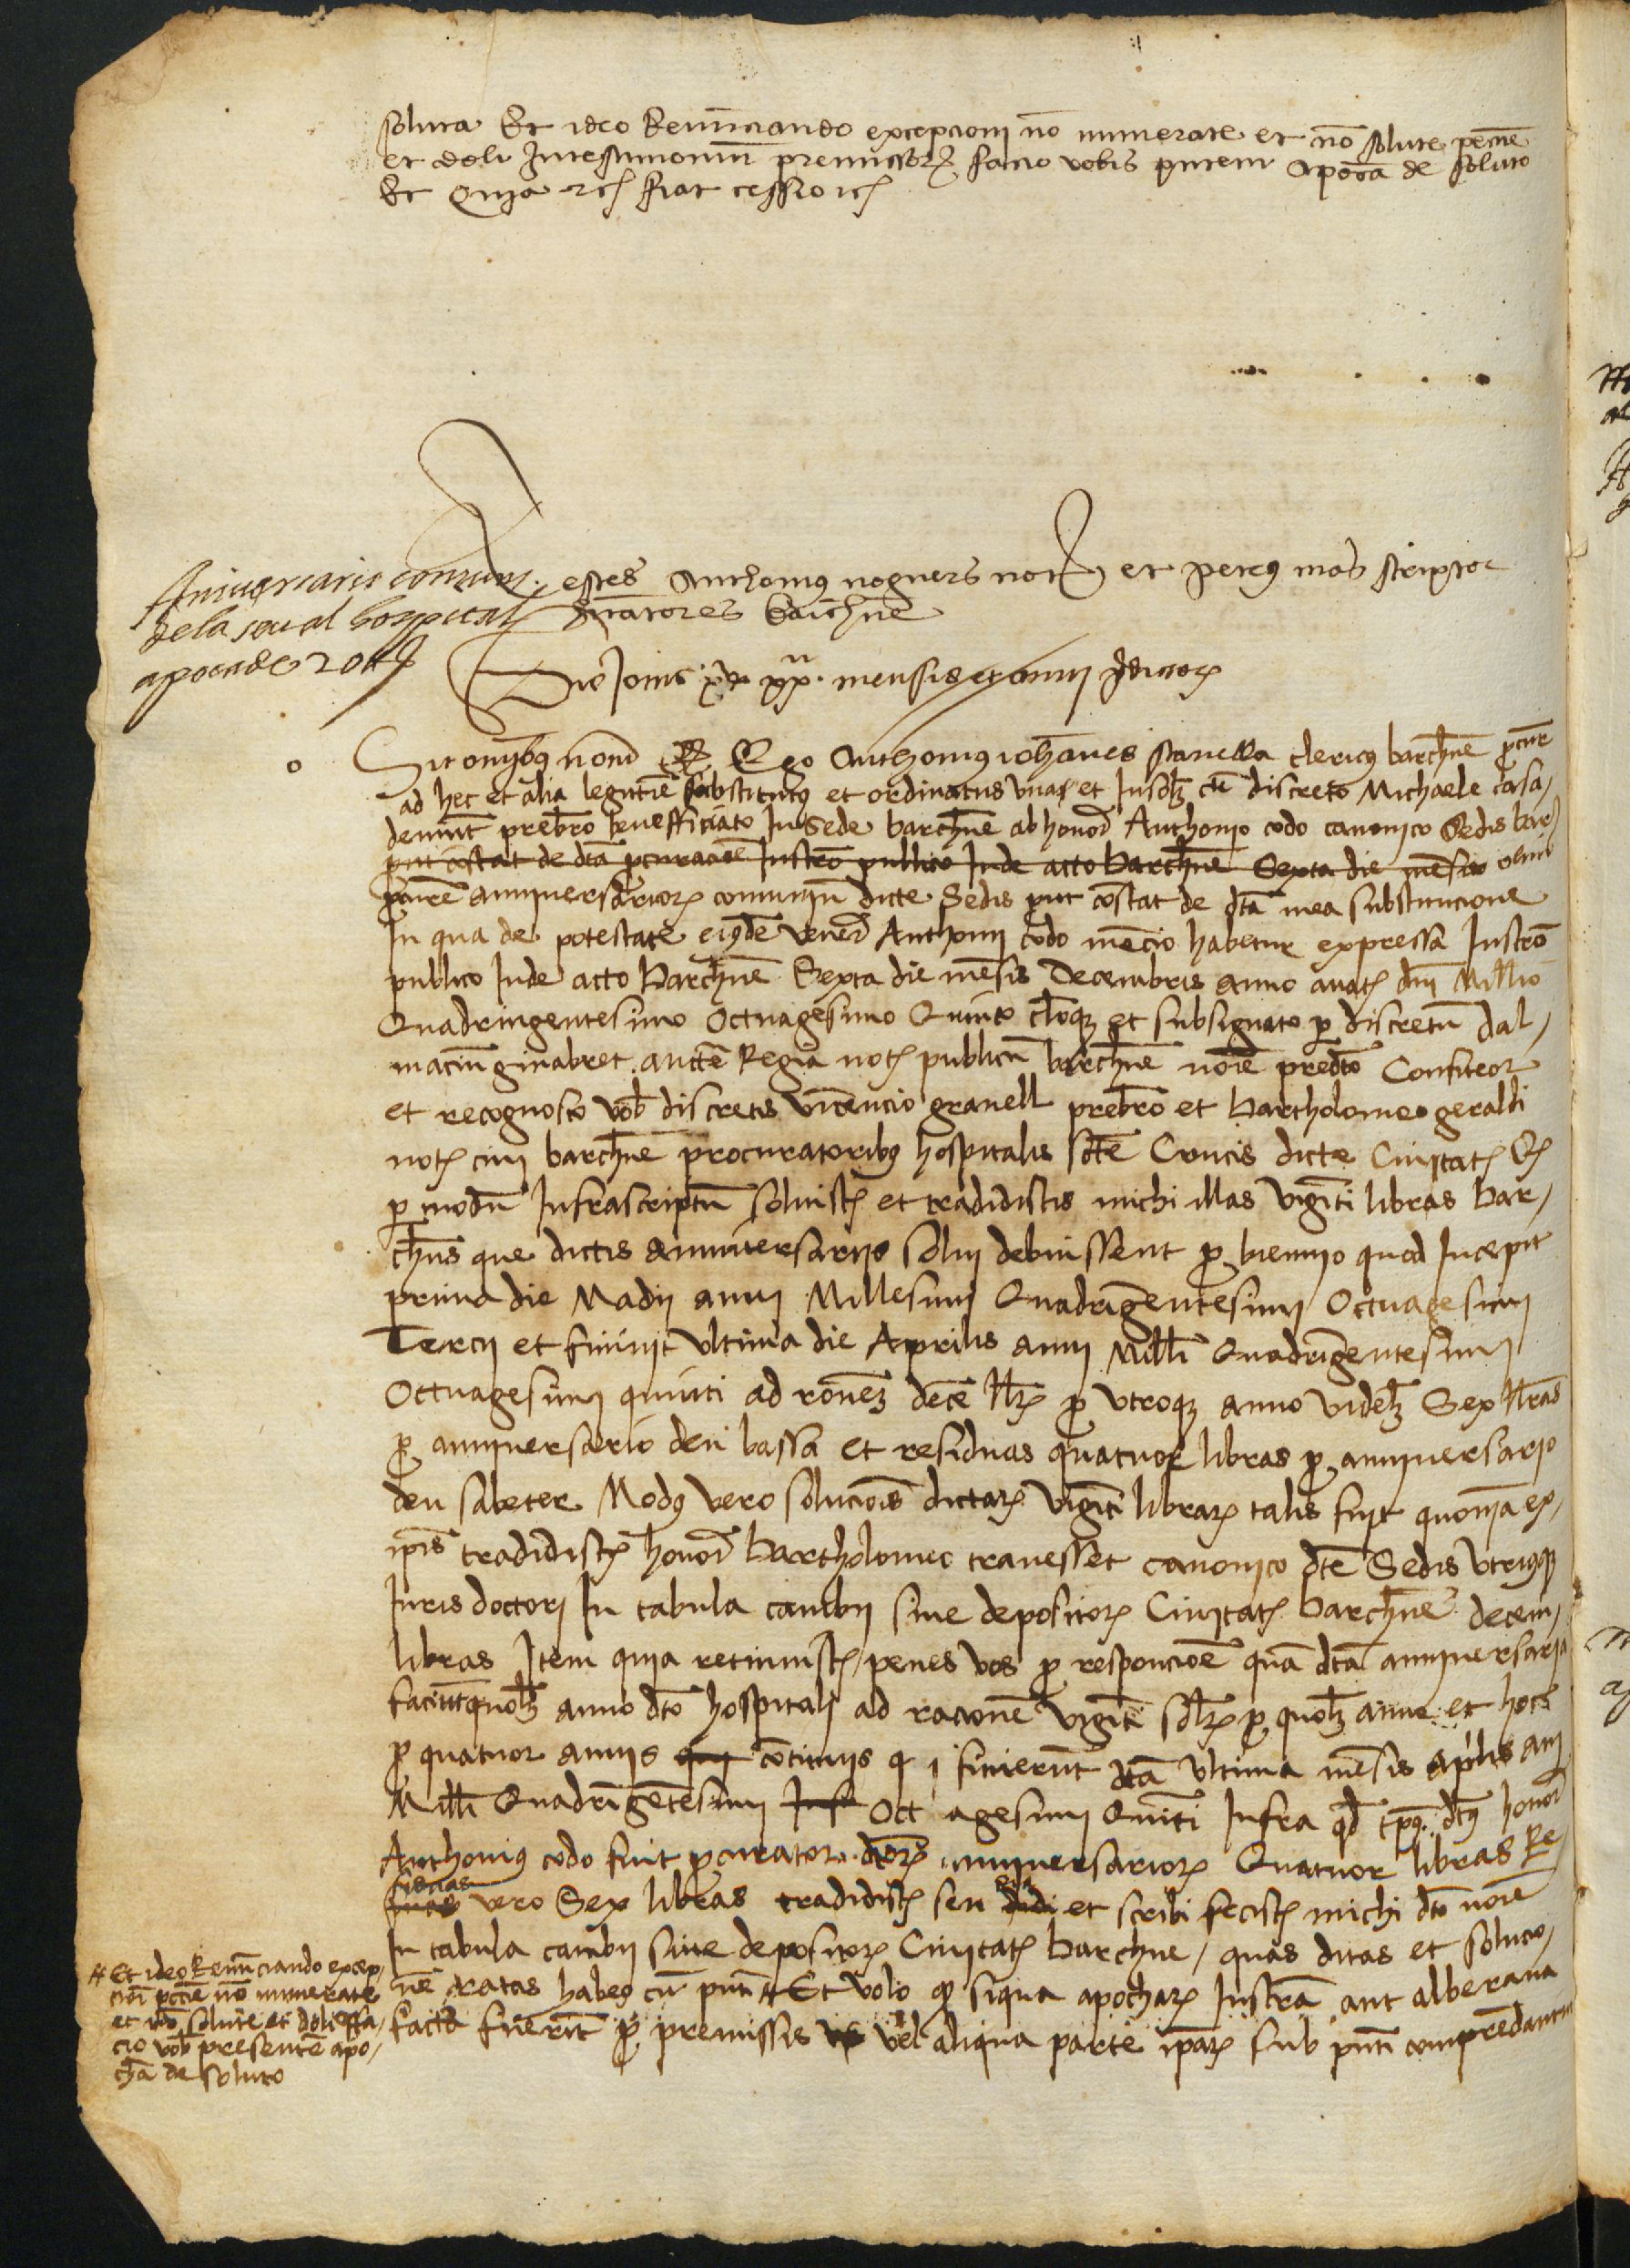 soluta Et ideo Renunciando excepcioni no numerate et no solute pecune
et doli In testimonium premissor facio vobis pntem apoca de soluto
Et Quia rets fiat cessio rets
Aniversaris comuns
de la seu al hospital
apoca de 20 ll
Testes Anthonius noguers not et petrus mas scriptor
habitatores Barchne
Die Jovis xx mensis et anni pdictor
Sit omnibus notu Q Ego Anthonius iohanes stanella clericus barchne pcur
ad hec et alia legittime substitutus et ordinatus una et Insolz cu discreto Michaele casa
demunt prebro benefficiato In Sede barchne ab honor Anthonio codo canonico Sedis bar
put costat de dta pcuracoe Instro publico Inde acto barchne Sexta die mesis olim
pcure anniversarior comuniu dicte Sedis put costat de dta mea substitucione
In qua de potestate eiusde vener Anthonii codo mecio habetur expressa Instro
publico Inde acto barchne Sexta die mesis Decembris anno a nat dni Millio
Quadringentesimo Octuagesimo Quinto cloq et subsignato p discretu dal
maciu ginabret aucte Regia not publicu barchne noie predto Confiteor
et recognosco vob discretis vicencio granell prebro et Bartholomeo geraldi
not civi barchne procuratoribus hospitalis sce Crucis dicte Civitat Q
p modu Infrascriptu solvist et tradidistis michi illas viginti libras bar
chns que dictis anniversariis solvi debuissent p biennio quod Incepit
prima die Madii anni Millesimi Quadringentesimi Octuagesimi
Tercii et finivit ultima die Aprilis anni Milli Quadringentesimi
Octuagesimi quinti ad ronez dece llr p utroq anno videlz Sex llras
p anniversario den bassa et residuas quatuor libras p anniversario
den sabeter Modus vero solucois dictar viginti librar talis fuit quonia ex
ipis tradidist honor Bartholomeo travesset canonico dte Sedis utriusq
Iuris doctori In tabula cambii sive depositor Civitat barchne decem
libras Item quia retinuist penes vos p responcioe qua dta anniversaria
faciut quolz anno dto hospitali ad racione viginti solr p quolz anno et hoc
p quatuor annis continuis q i finierut dta ultima mesis aplis ani
Milli Quadringentesimi Inf Octuagesimi Quinti Infra qd tps dtus honor
Anthonius codo fuit pcurator dtor anniversarior Quatuor libras Re
siduas vero Sex libras tradidist seu dici et scribi fecist michi dto noie
In tabula cambii sive depositor Civitat barchne quas ditas et solucio
ne ratas habeo cu pnti # Et volo q siqua apochar Instra aut alberana
facta fuerit p premissis vel aliqua parte ipar sub pnti compredantur
# Et ideo Renunciando excep
cioi pecue no numerate
et no solute et doli ffa
cio vob presente apo
cha de soluto